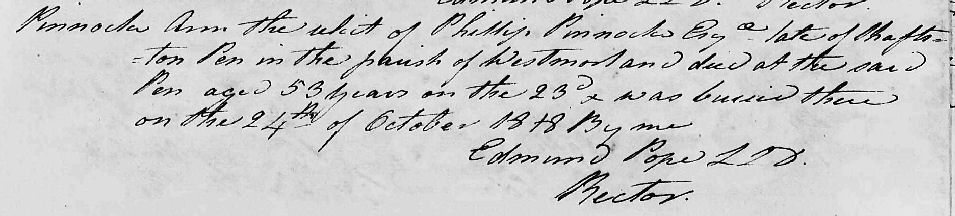 Edmund Pope LLD. Rector.
Pinnock Ann the relict of Phillip Pinnock Esqre late of Shafts=
=ton Pen in the parish of Westmorland died at the said
Pen aged 53 years on the 23d & was buried there
on the 24th of October 1818 By me
Edmund Pope LLD.
Rector.